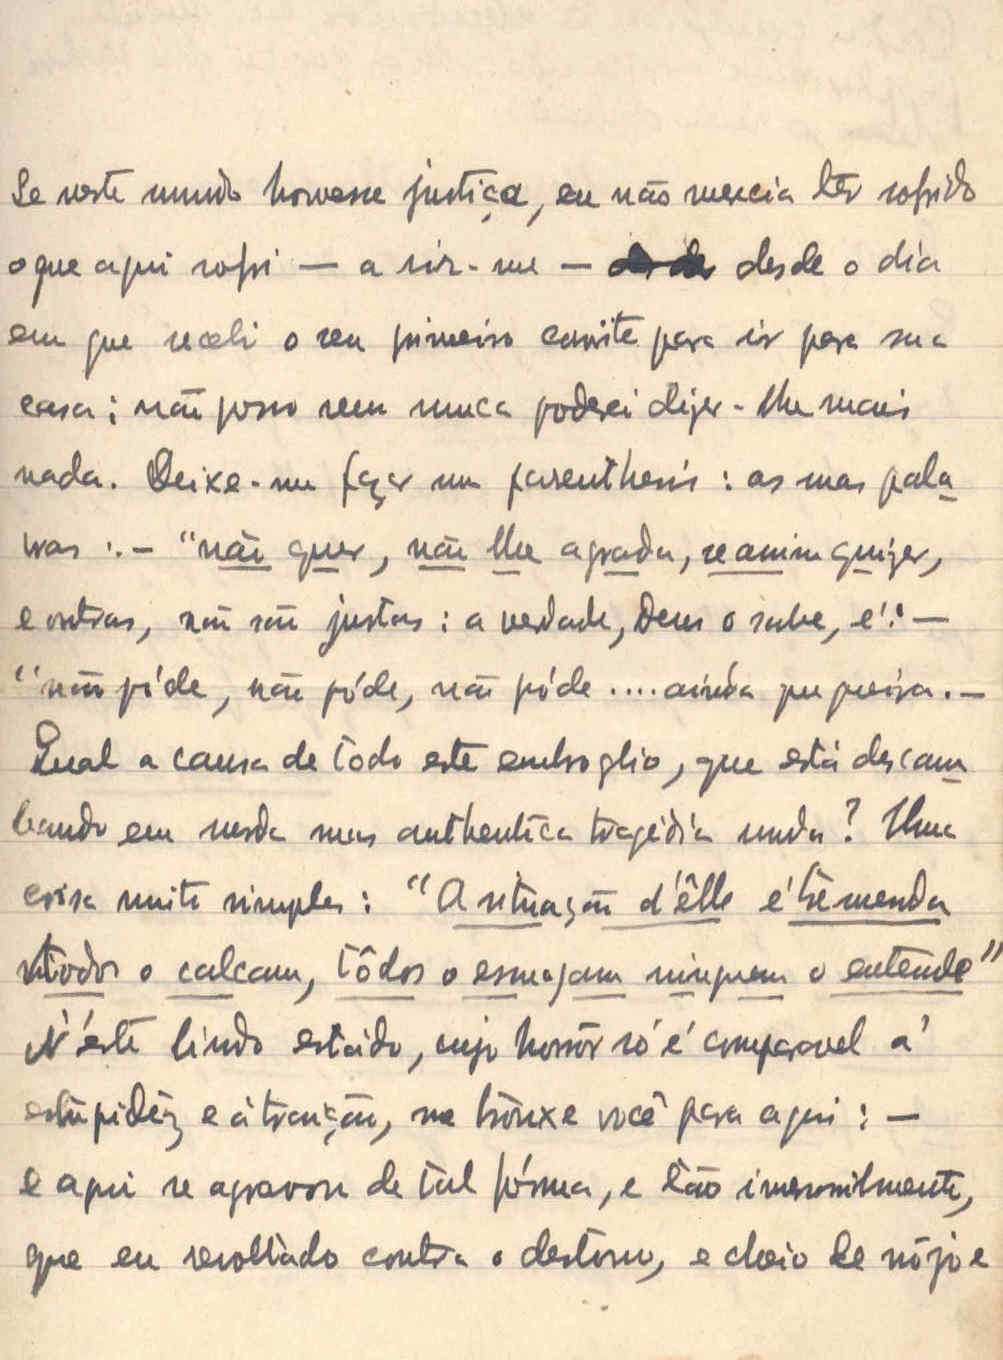 Se neste mundo houvesse justiça, eu não merecia têr sofrido
o que aqui sofri — a sós-me — desde o dia
em que recebi o seu primeiro convite para ir para sua
casa; não posso nem nunca poderei dizer-lhe mais
nada. Deixe-me fazer um parenthesis: as suas pala
vras :.— "não quer, não lhe agrada, se a mim quizer,
e outras, não são justas: a verdade, Deus o sabe, é:—
"não póde, não póde, não póde .... ainda que queira.—
Qual a causa de tôdo este embroglio, que está descam
bando em uma authentica tragédia muda? Uma
coisa muito simples: "A situação d'êlle é tremenda
todos o calcam, tôdos o esmagam ninguem o entende"
N'éste lindo estádo, cujo horrôr só é comparavel á
estupidêz e á traição, me trouxe você para aqui:—
e aqui se agravou de tal fórma, e tão inverosilmente,
que eu revoltado contra o destino, e cheio de nôjo e